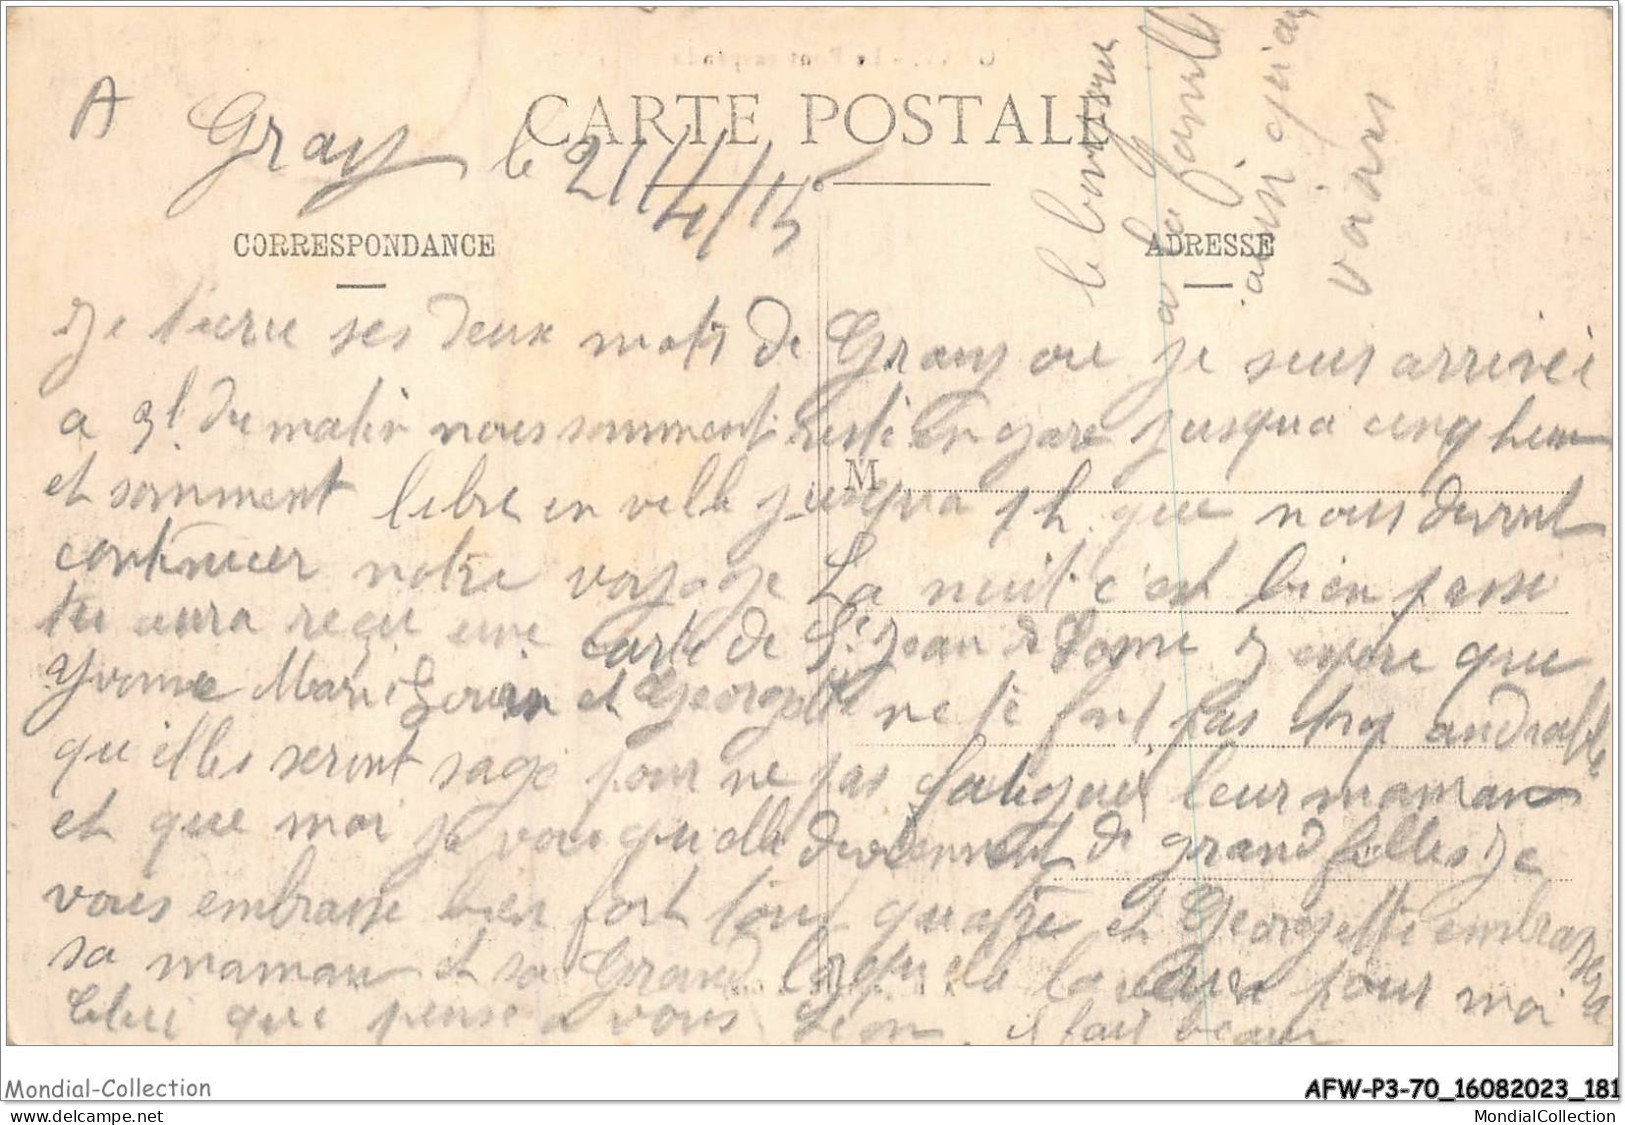 A
Gray le 21/4/15
CARTE POSTALE
CORRESPONDANCE
ADRESSE
M
le bonjour
a la famille
ainsi qu'aux
voisins
Je ses deux mots de Gray ou je suis arrivée
a 3h du matin nous somment resté en gare jusqua cinq heure
et somment libre en ville jusqua 1h que nous devront
continuer notre voyage La nuit c'est bien passe
tu aura reçu une carte de St Jean d Losne J espere que
Yvonne Marie Louise et Georgette ne te font pas trop andiable
qu'elles seront sage pour ne pas fatiguer leur maman
et que moi je vois qu elle deviennent de grand filles Je
vous embrasse bien fort tout quatre et Georgette embrassera
sa maman et sa Grand pour moi
Celui que pense a vous Léon. il fait beau
Mondial-Collection
AFW-P3-70_16082023_181
www.delcampe.net
MondialCollection